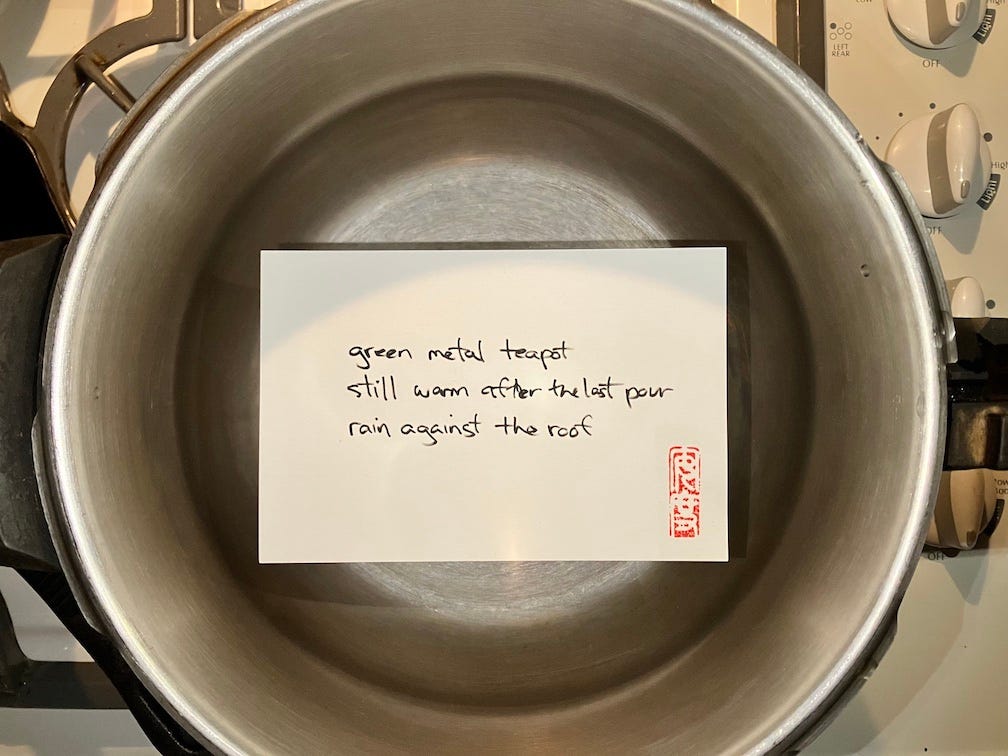 green metal teapot
still warm after the last pour
rain against the roof
LEFT
REAR
OFF
High
Light
OFF
High
Light
OFF